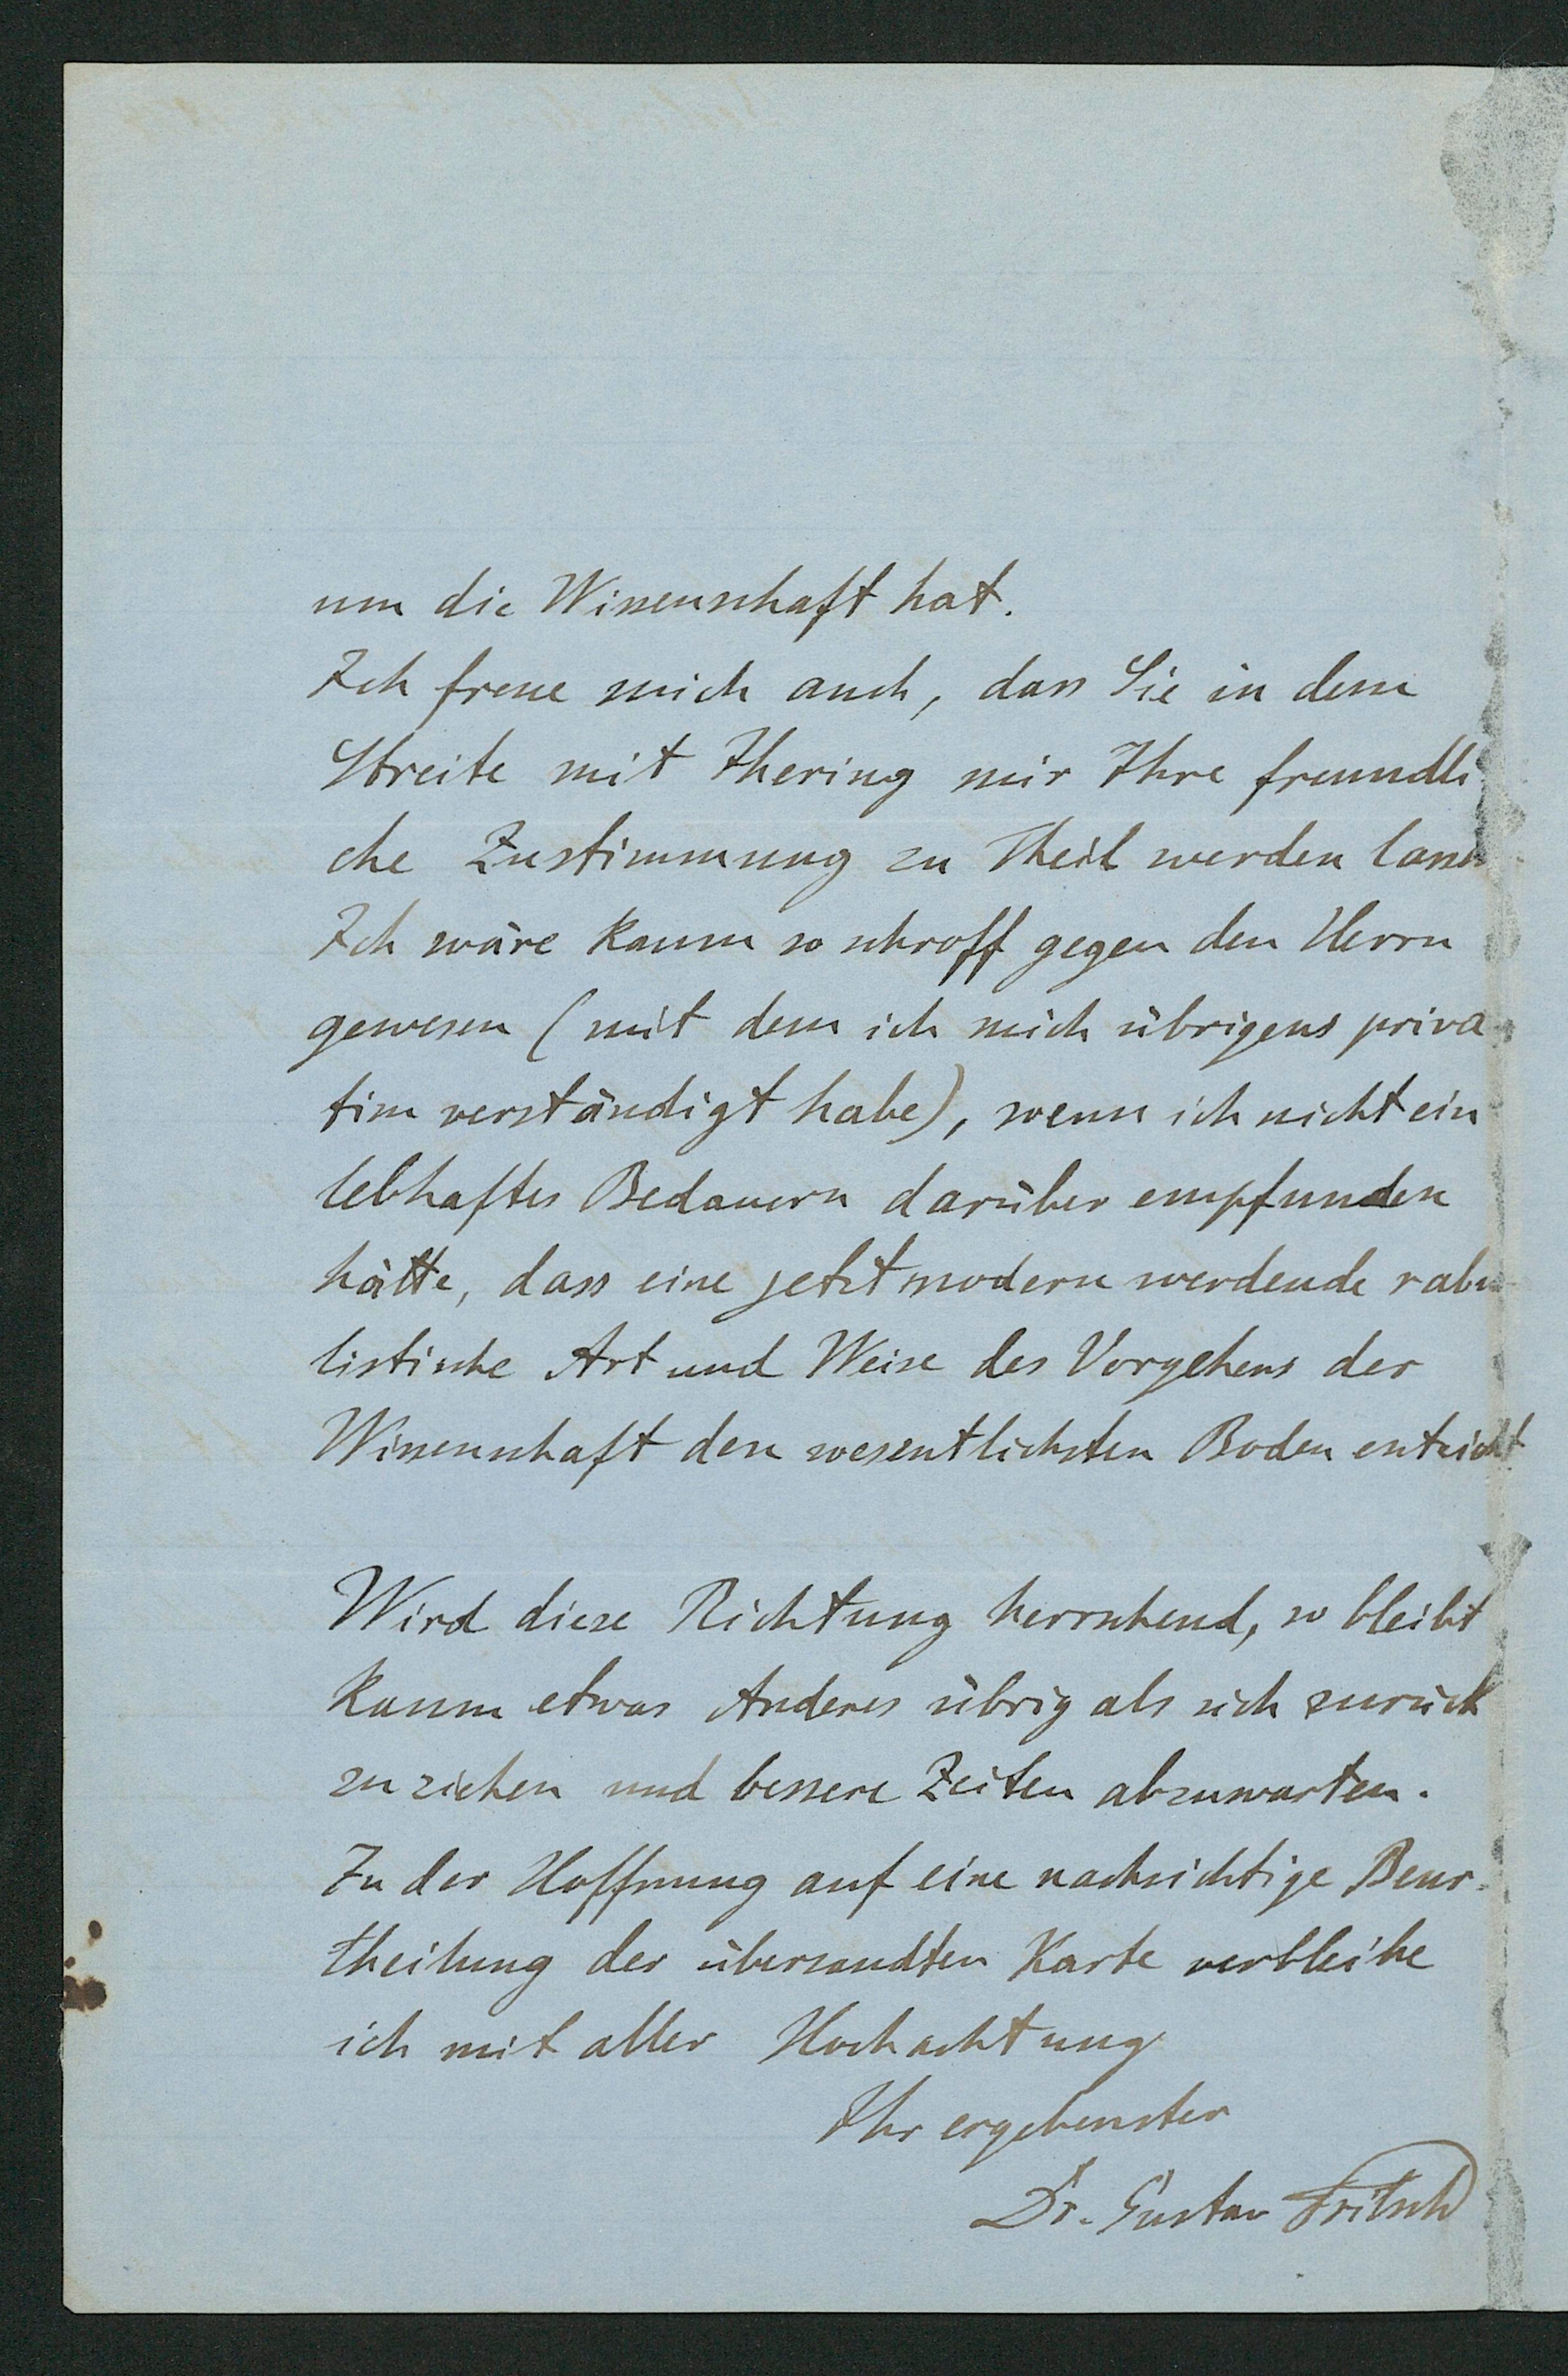 um die Wissenschaft hat.
Ich freue mich auch, dass Sie in dem
Streite mit Ihering mir Ihre freundli
che Zustimmung zu Theil werden lassen
Ich wäre kaum so schroff gegen den Herrn
gewesen (mit dem ich mich übrigens priva
tim verständigt habe), wenn ich nicht ein
lebhaftes Bedauern darüber empfunden
hätte, dass eine jetzt modern werdende rabu
listische Art und Weise des Vorgehens der
Wissenschaft den wesentlichsten Boden entzieht
Wird diese Richtung herrschend, so bleibt
kaum etwas Anderes übrig als sich zurück
zu ziehen und bessere Zeiten abzuwarten.
In der Hoffnung auf eine nachsichtige Beur-
theilung der übersandten Karte verbleibe
ich mit aller Hochachtung
Ihr ergebenster
Dr. Gustav Fritsch